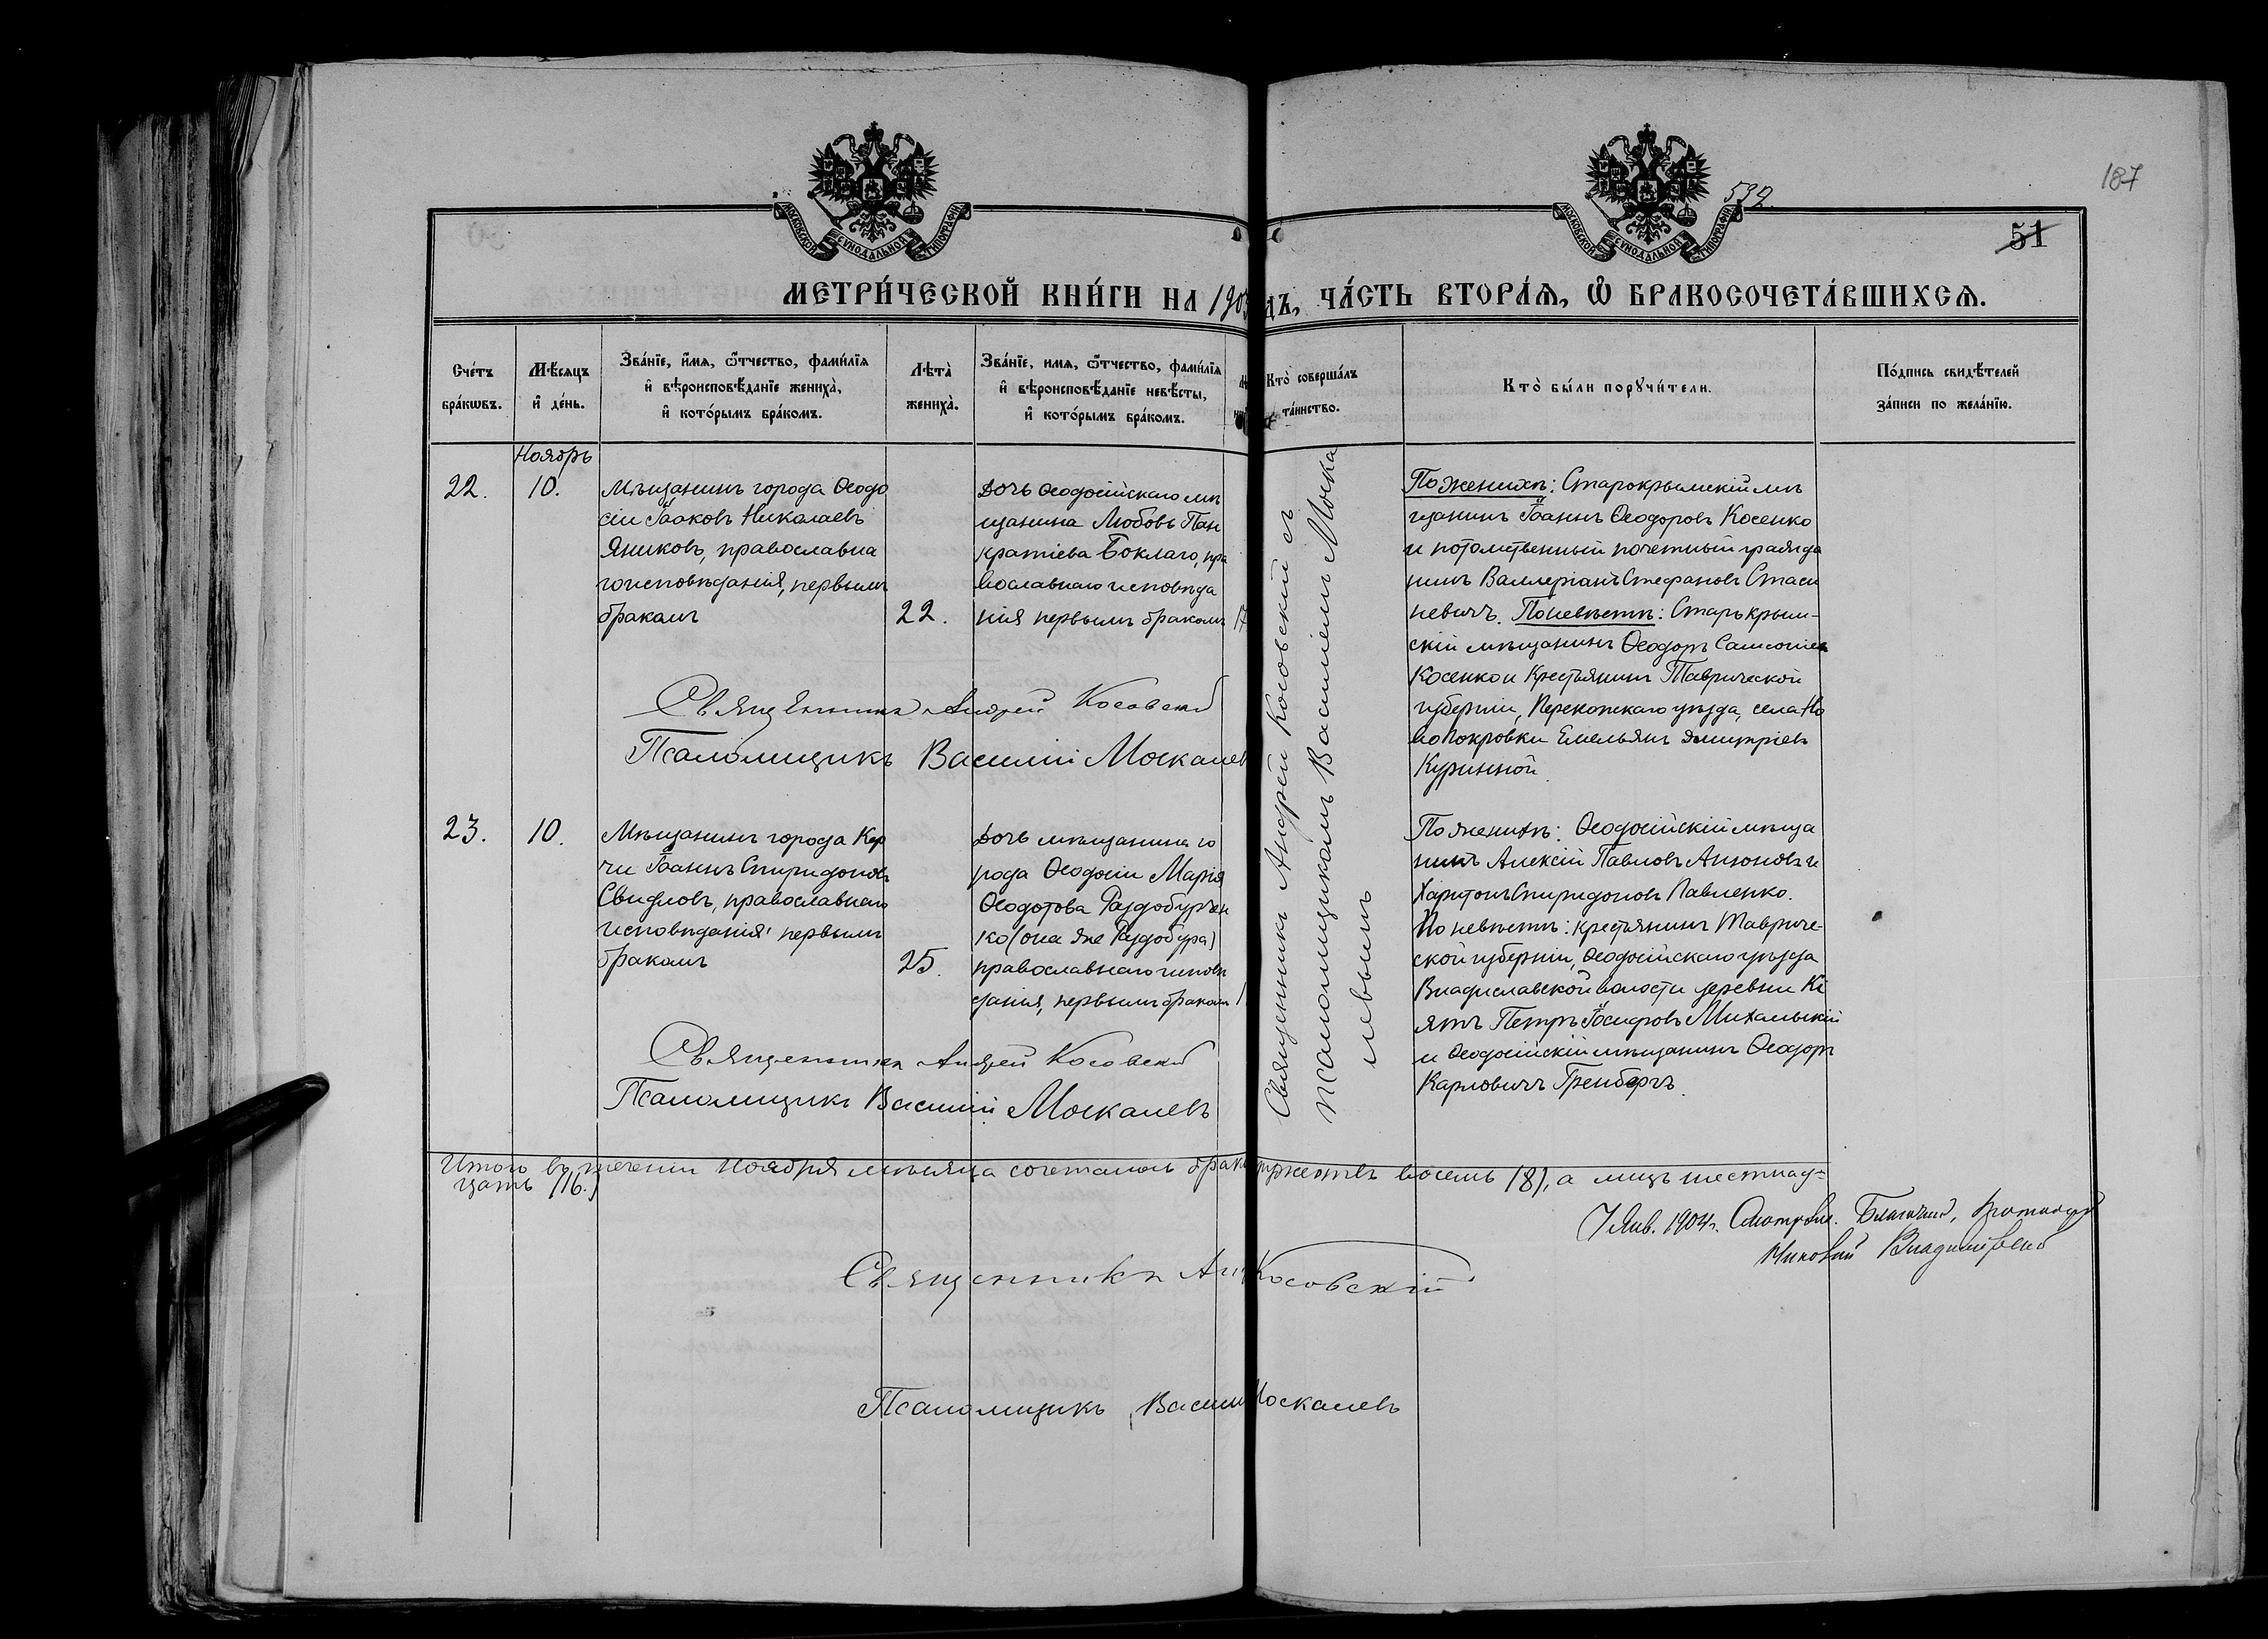 187
532
51
МОСКОВСКОЙ СУНОДАЛЬНОЙ ТИПОГРАФІИ
МОСКОВСКОЙ СУНОДАЛЬНОЙ ТИПОГРАФІИ
МЕТРИ́ЧЕСКОЙ КНИ́ГИ НА 1903 ДЪ, ЧА́СТЬ ВТОРА́Я, Ѽ БРАКОСОЧЕТА́ВШИХСЯ.
Сче́тъ
бра́кѡвъ.
Мѣ́сяцъ
и҆ де́нь.
Зва́нїе, и҆́мя, ѻ҆́тчество, фами́лїя
и҆ вѣроисповѣ́данїе жениха̀,
и҆ кото́рымъ бра́комъ.
Лѣта̀
жениха̀.
Зва́нїе, имя, ѻ҆́тчество, фами́лїя
и҆ вѣроисповѣ́данїе невѣ́сты,
и҆ кото́рымъ бра́комъ.
Кто̀ соверша́лъ
та́инство.
Кто̀ бы́ли порꙋчи́тели.
По́дпись свидѣ́телей
за́писи по жела́нїю.
Ноябрь
22.
10.
Мѣщанинъ города Ѳеодо
сіи Іаковъ Николаевъ
Яниковъ, православна
го исповѣданія, первымъ
бракомъ
22.
Дочь Ѳеодосійскаго мѣ
щанина Любовь Пан
кратіева Боклаго, пра
вославнаго исповѣда
нія первымъ бракомъ
17
Священникъ Андрей Косовскій съ
псаломщикомъ Василіемъ Моска
левымъ
По женихѣ: Старокрымскій мѣ
щанинъ Іоаннъ Ѳеодоровъ Косенко
и потомственный почетный гражда
нинъ Валлеріанъ Стефановъ Стаси
невичъ. По невѣстѣ: Старокрым-
скій мѣщанинъ Ѳеодоръ Самсоніевъ
Косенко и Крестьянинъ Таврической
губерніи, Перекопскаго уѣзда, села Но
во Покровки Емельянъ Димитріевъ
Куринной.
Священникъ Андрей Косовскій
Псаломщикъ Василій Москалев
23.
10.
Мѣщанинъ города Кер
чи Іоаннъ Спиридоновъ
Свифловъ, православнаго
исповѣданія первымъ
бракомъ
25.
Дочь мѣщанина го
рода Ѳеодосіи Марія
Ѳеодотова Раздобурен
ко (она же Раздобура)
православнаго исповѣ
данія, первымъ бракомъ
По женихѣ: Ѳеодосійскій мѣща
нинъ Алексій Павловъ Антоновъ и
Харитонъ Спиридоновъ Павленко.
По невѣстѣ: крестьянинъ Тавриче-
ской губерніи, Ѳеодосійскаго уѣзда
Владиславской волости деревни Кі
ятъ Петръ Іосифовъ Михальскій
и Ѳеодосійскій мѣщанинъ Ѳеодоръ
Карловичъ Гренбергъ.
Священникъ Андрей Косовскій
Псаломщикъ Василій Москалевъ
Итого въ теченіи Ноября мѣсяца сочеталось брак супружествъ восемь (8), а лицъ шестнад-
цать (16.)
7 Янв. 1904 г. Смотрѣлъ. Благочин., Протоіерей
Владимірскій
Священникъ Ан Косовскій
Псаломщикъ Васили Москалевъ